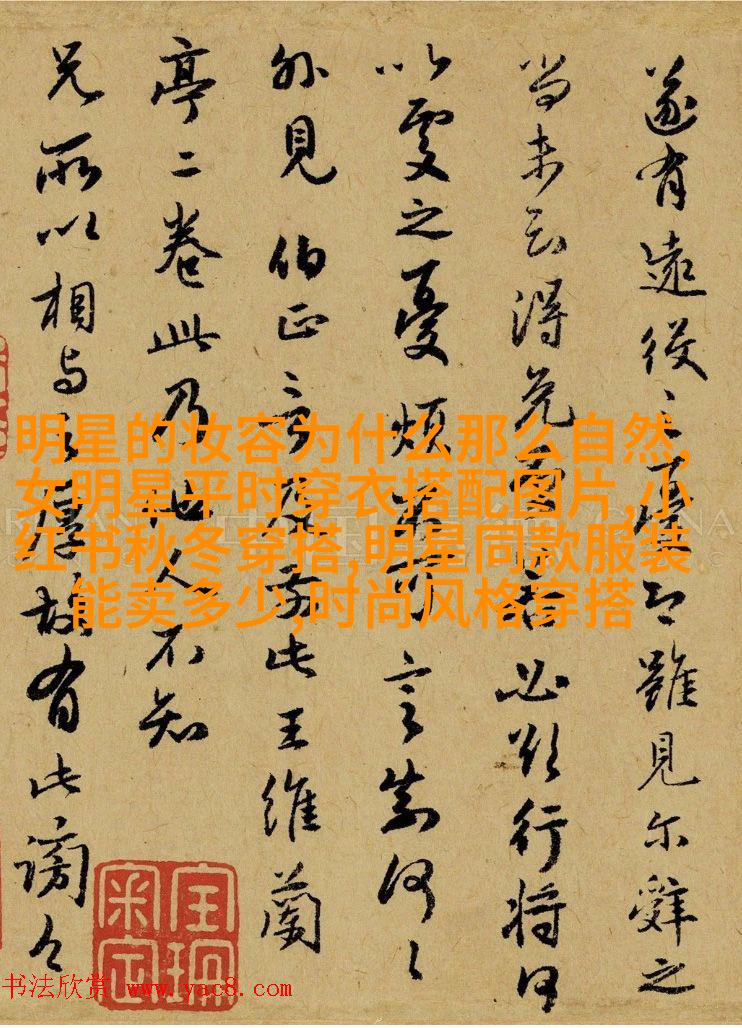 遂有遠役之雖見尔辭之
当未得免否必欲行将何
以憂煩不可言奈何
外見伯正言此王維蘭
亭二卷此乃世人不知
兄所以相与厚故有此謗
明星的妆容为什么那么自然,
女明星平时穿衣搭配图片,小
红书秋冬穿搭,明星同款服装
能卖多少,时尚风格穿搭
书法欣赏 www.yac8.com